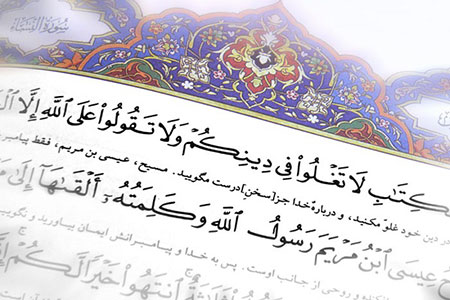 سُورَةُ النِّسَاء
لْكِتَٰبِ لَا تَغْلُوا۟ فِى دِينِكُمْ وَلَا تَقُولُوا۟ عَلَى ٱللَّهِ إِلَّا
در دین خود غلوّ مکنید، و دربارهٔ خدا جز [سخن] درست مگویید. مسیح، عیسی بن مریم، فقط پیامبر
عِيسَى ٱبْنُ مَرْيَمَ رَسُولُ ٱللَّهِ وَكَلِمَتُهُۥٓ أَلْقَىٰهَآ إِلَىٰ
و روحی از جانب اوست. پس به خدا و پیامبرانش ایمان بیاورید و نگویید
ٱنتَهُوا۟ خَيْرًا لَّكُمْ